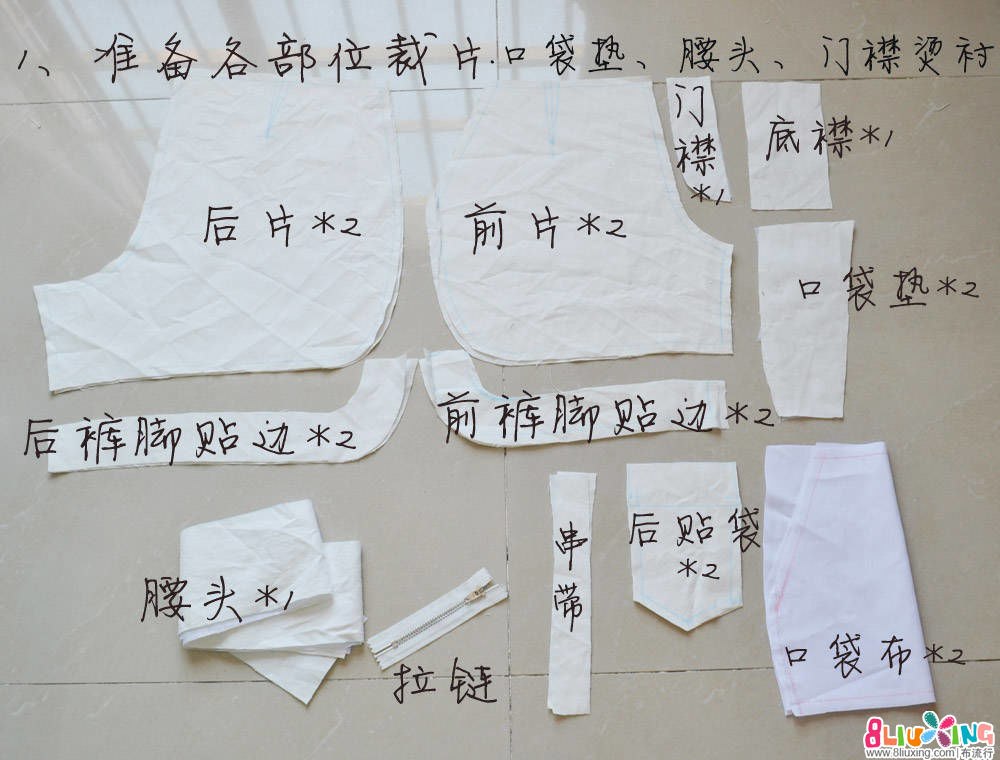 1、准备各部位裁片.口袋垫、腰头、门襟烫衬
门
襟
*1
底襟*1
后片*2
前片*2
口袋垫*2
后裤脚贴边*2
前裤脚贴边*2
腰头*1
拉链
串
带
后贴袋
*2
口袋布*2
8LIUXING
www.8liuxing.com|布流行